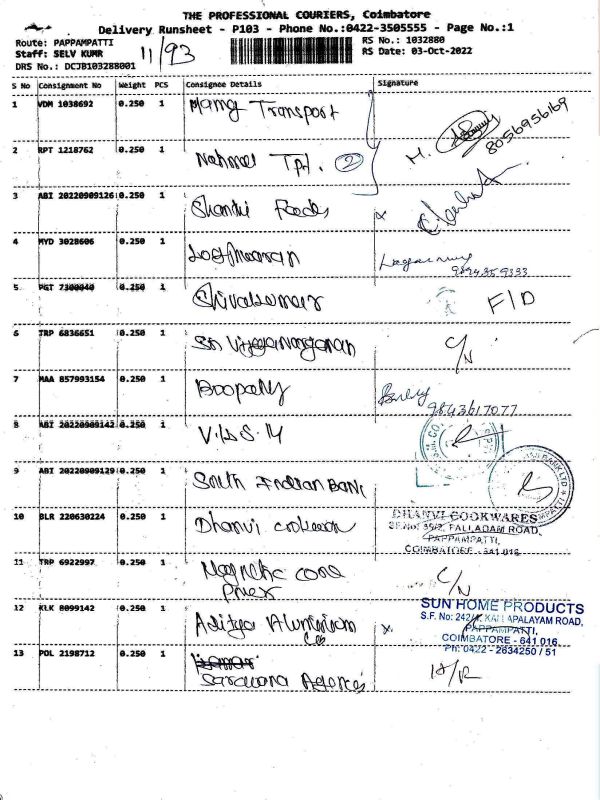 THE PROFESSIONAL COURIERS, Coimbatore
Delivery Runsheet - P103 - Phone No.:0422-3505555 - Page No.:1
Route: PAPPAMPATTI
Staff: SELV KUMR
11/93
RS No.: 1032880
RS Date: 03-Oct-2022
DRS No.: DCJB103288001
S No Consignment No Weight PCS Consignee Details Signature
1 VDM 1038692 0.250 1 Mang Transport
M. 8056956169
2 RPT 1218762 0.250 1 National Tpt. 2
3 ABI 20220909126 0.250 1 Shanthi Foods x
4 MYD 3028606 0.250 1
9894359333
5 PGT 7300040 0.250 1 Shivakumar F/D
6 TRP 6836651 0.250 1 C/N
7 MAA 857993154 0.250 1 Boopathy
9843617077
8 ABI 20220909142 0.250 1 V.K.S.M
9 ABI 20220909129 0.250 1 South Indian Bank
10 BLR 220630224 0.250 1 Dhanvi cookware
DHANVI COOKWARES
SF.No: 35/2, PALLADAM ROAD,
PAPPAMPATTI,
COIMBATORE - 641 016
11 TRP 6922997 0.250 1 Magnetic core C/N
12 KLK 8099142 0.250 1 Aditya Aluminium x
SUN HOME PRODUCTS
S.F. No: 242/4, KALLAPALAYAM ROAD,
PAPPAMPATTI,
COIMBATORE - 641 016.
Ph: 0422 - 2634250 / 51
13 POL 2198712 0.250 1
Saravana Agencies